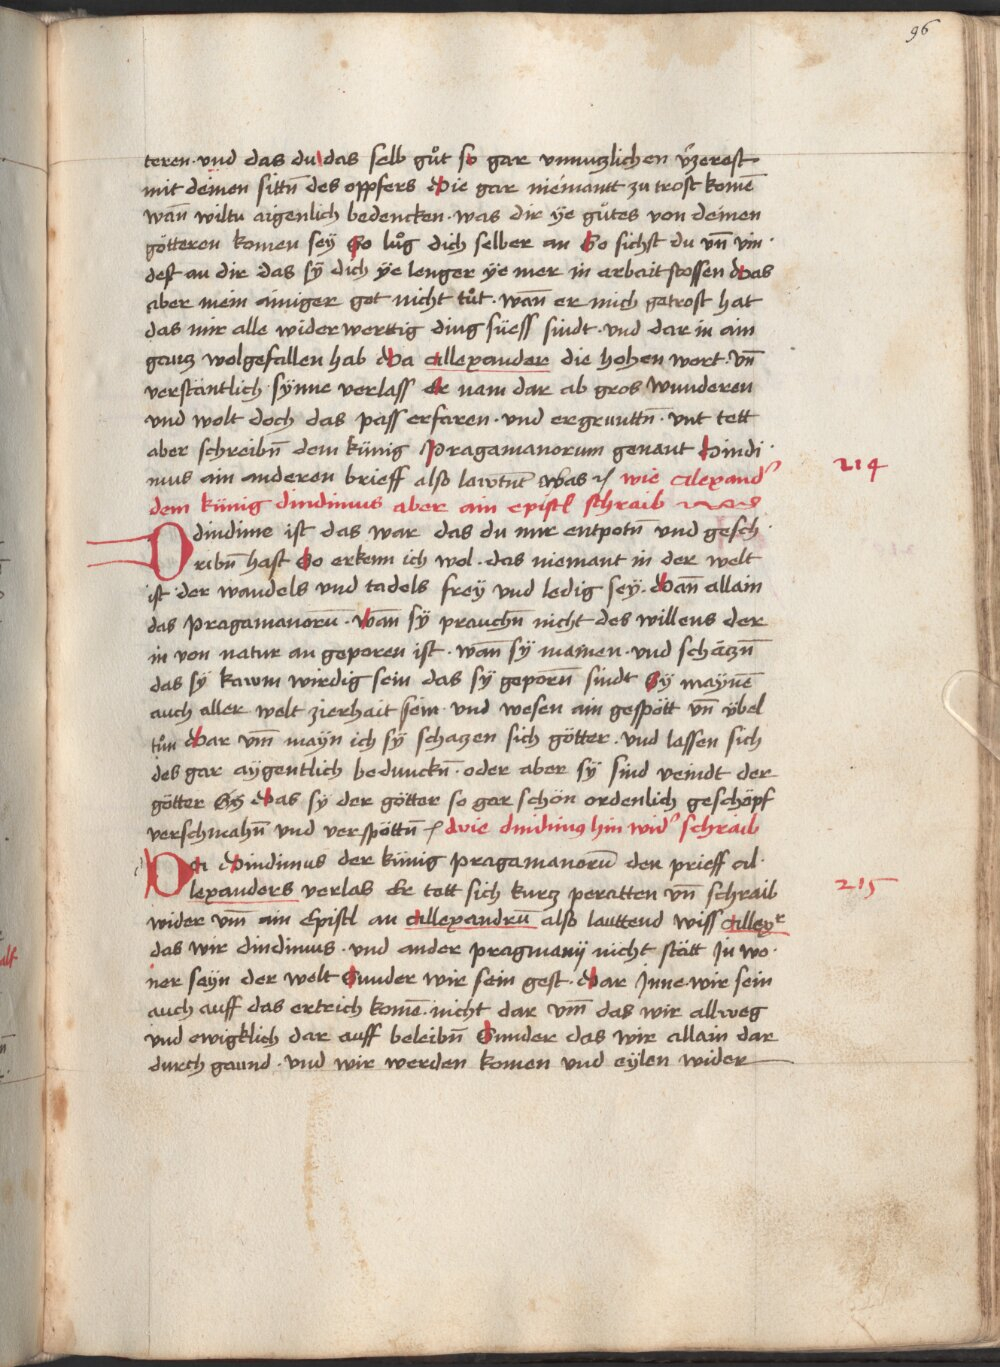 96
teren · vnd das du das selb gůt so gar vnnutzlichen v́zerest
mit deinen sittn̄ des oppfers Die gar niemantt zu trost komē
wan̄ wiltu aigenlich bedencken · was dir ye gůtes von deinen
götteren komen seÿ So lůg dich selber an So sichst du vn̄ vin ·
dest an dir das sÿ dich ÿe lenger ÿe mer in arbait stossen Das
aber mein ainiger got nicht tůt · wan̄ er mich getrost hat
das mir alle widerwerttig ding süess sindt · vnd dar in ain
gantz wolgefallen hab Da allexander die hohen wort · vn̄
verstäntlich sÿnne verlass Er nam dar ab gros wunderen
vnd wolt doch das pass erfaren · vnd ergruuttn̄ · vnt tett
aber schreibn̄ dem künig Pragamanorum genant Dindi ·
mus ain anderen brieff also lawtn̄t was wie Alexand᾽
214
dem künig dindimus aber ain epistl schraib
O dindime ist das war das du mir entpotn̄ vnd gesch ·
ribn̄ hast So erkenn ich wol · das niemant in der welt
ist der wandels vnd tadels freÿ vnd ledig seÿ · Dan̄ allain
das Pragamanorū · Wan̄ sÿ prauchn̄ nicht des willens der
in von natur an geporen ist · wan̄ sÿ mainen · vnd schätzn̄
das sÿ kawm wirdig sein das sÿ geporn̄ sindt Sÿ maÿnē
auch aller welt zierhait sein · vnd wesen ain gespött vn̄ v̈bel
tůn Dar vm̄ maÿn ich sÿ schatzen sich götter · vnd lassen sich
des gar aÿgentlich beduncкn̄ · oder aber sÿ sind veindt der
götter Das sÿ der götter so gar schön ordenlich geschöpf
verschmahn̄ vnd verspöttn̄ wie dindimus hin wid᾽ schraib
Da Dindimus der künig pragamanorū den prieff al ·
lexanders verlas Er tett sich kurtz peratten vn̄ schraib
215
wider vm̄ ain Epistl an allexandrū also lauttend wiss allexʳ
das wir dindimus · vnd ander pragmanij nicht stätt Jn wo ·
ner saÿn der welt Sunder wir sein gest · Dar Jnne wir sein
auch auff das ertrich komē · nicht dar vm̄ das wir allweg
vnd ewigklich dar auff beleibn̄ Sunder das wir allain dar
durch gaund · vnd wir werden komen vnd eÿlen wider